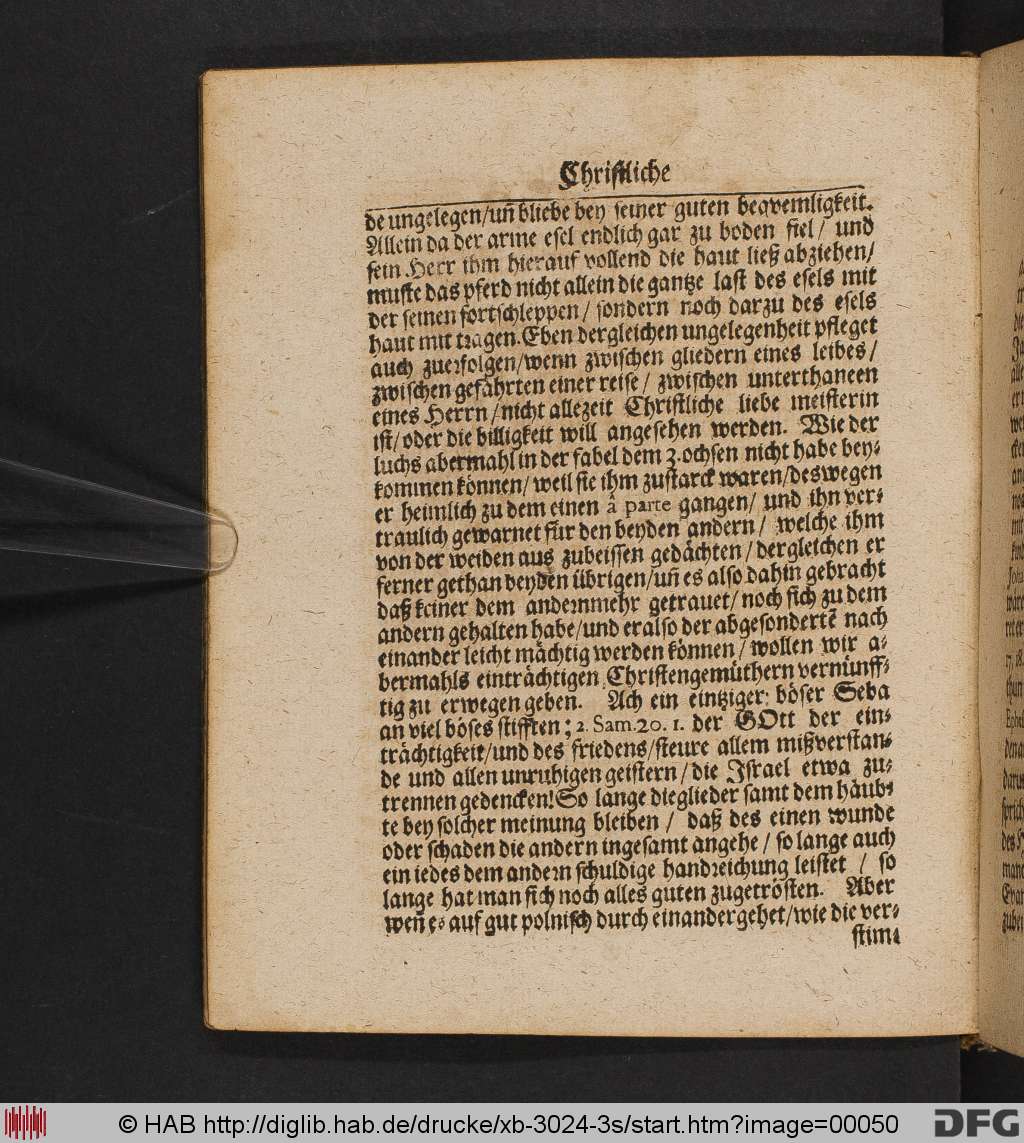 Christliche
de ungelegen/uñ bliebe bey seiner guten beqvemligkeit.
Allein da der arme esel endlich gar zu boden fiel/ und
sein Herr ihm hierauf vollend die haut ließ abziehen/
muste das pferd nicht allein die gantze last des esels mit
der seinen fortschleppen/ sondern noch darzu des esels
haut mit tragen. Eben dergleichen ungelegenheit pfleget
auch zuerfolgen/wenn zwischen gliedern eines leibes/
zwischen gefährten einer reise/ zwischen unterthaneen
eines Herrn/nicht allezeit Christliche liebe meisterin
ist/oder die billigkeit will angesehen werden. Wie der
luchs abermahl in der fabel dem 3. ochsen nicht habe bey-
kommen können/ weil sie ihm zustarck waren/deswegen
er heimlich zu dem einen â parte gangen/ und ihn ver-
traulich gewarnet für den beyden andern/ welche ihm
von der weiden aus zubeissen gedächten/ dergleichen er
ferner gethan beyden übrigen/uñ es also dahin gebracht
daß keiner dem andernmehr getrauet/noch sich zu dem
andern gehalten habe/und er also der abgesondertẽ nach
einander leicht mächtig werden können/ wollen wir a-
bermahls einträchtigen Christengemüthern vernünff-
tig zu erwegen geben. Ach ein eintziger böser Seba
an viel böses stifften; 2. Sam. 20. 1. der GOtt der ein-
trächtigkeit/und des friedens/steure allem mißverstan-
de und allen unruhigen geistern/die Israel etwa zu-
trennen gedencken! So lange die glieder samt dem häub-
te bey solcher meinung bleiben/ daß des einen wunde
oder schaden die andern ingesamt angehe/ so lange auch
ein iedes dem andern schuldige handreichung leistet / so
lange hat man sich noch alles guten zugetrösten. Aber
weñ es auf gut polnisch durch einandergehet/wie die ver-
stim-
© HAB http://diglib.hab.de/drucke/xb-3024-3s/start.htm?image=00050
DFG